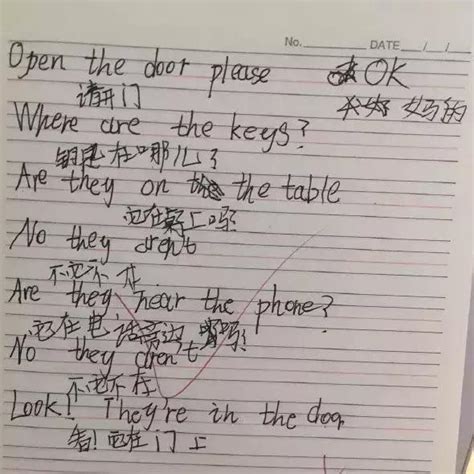 No. DATE / /
Open the door please OK
请开门 妈的
Where are the keys?
钥匙在哪儿?
Are they on the table
它在桌上吗?
No they aren't
不它不在
Are they near the phone?
它在电话旁边吗!
No they aren't
不它不在
Look! They're in the door
看!它在门上